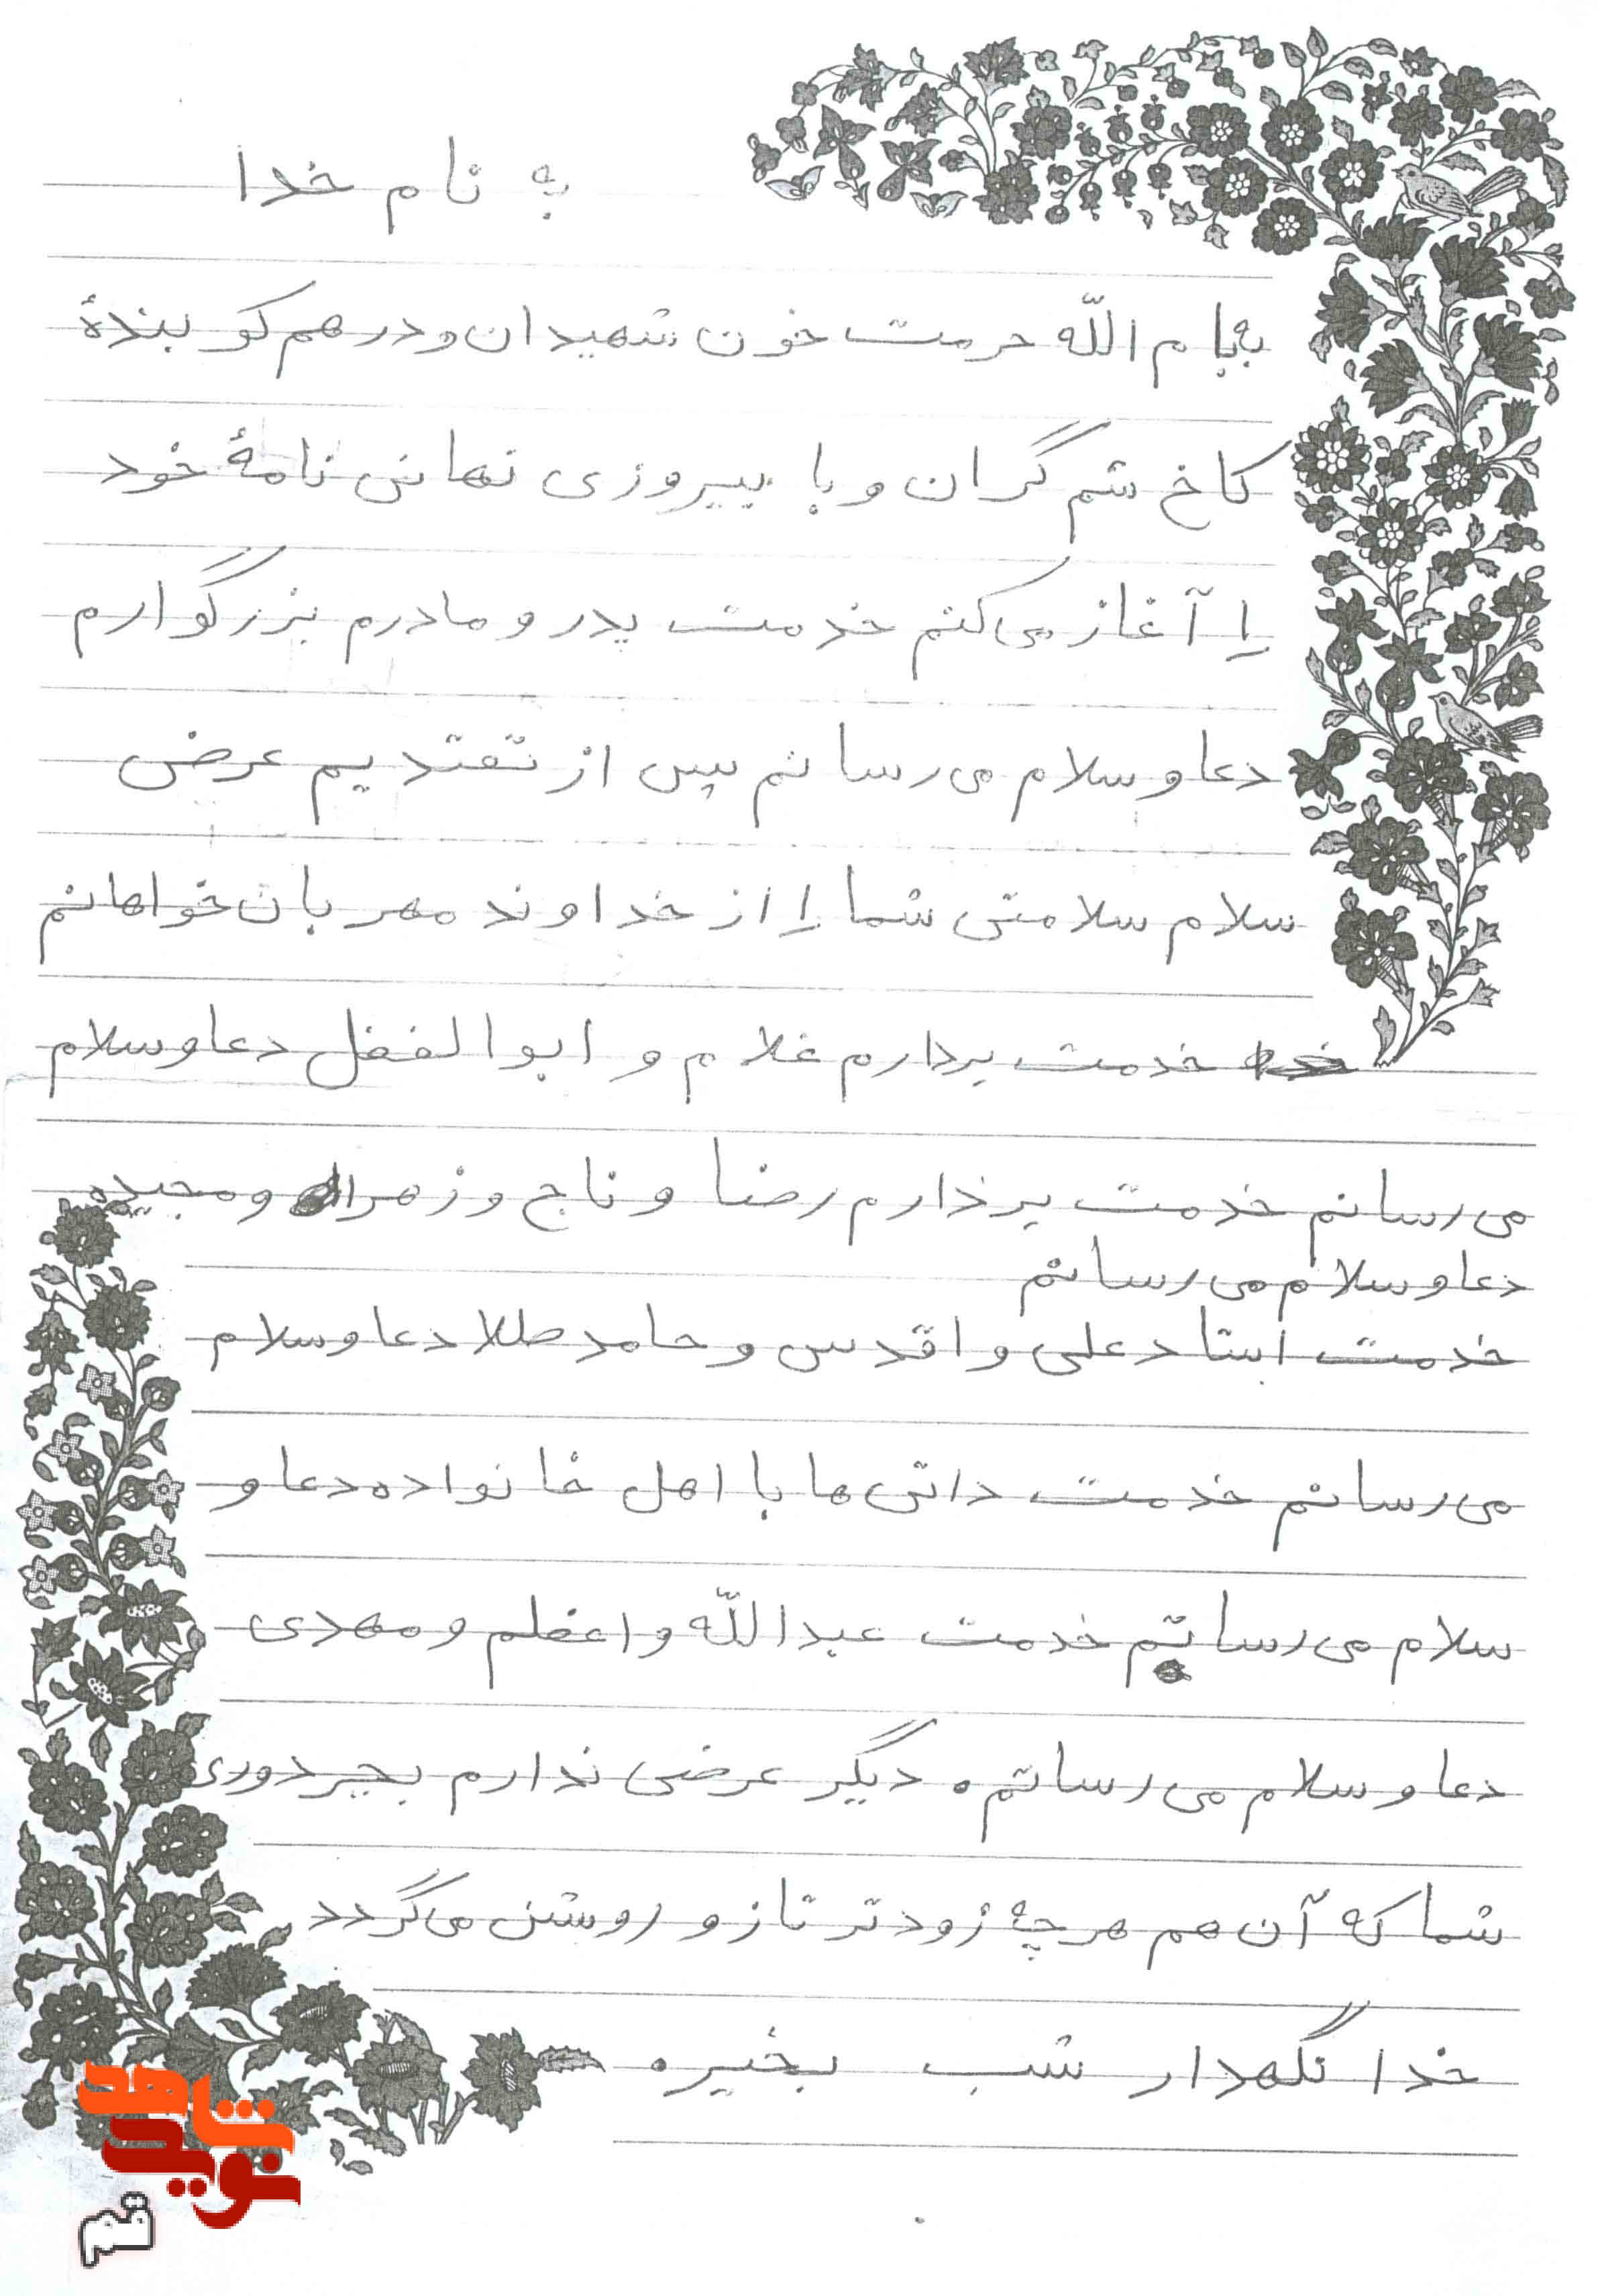 به نام خدا
به نام اللّه حرمت خون شهیدان و در هم کو بندۀ
کاخ ستم گران و با پیروزی نهانی نامۀ خود
را آغاز می کنم خدمت پدر و مادرم بزرگوارم
دعا و سلام می رسانم پس از تقدیم عرض
سلام سلامتی شما را از خداوند مهربان خواهانم
خدمت بردارم غلام و ابوالفضل دعا و سلام
می رسانم خدمت برذارم رضا و تاج و زهرا و مجیده
دعا و سلام می رسانم
خدمت استاد علی و اقدس و حامد طلا دعا و سلام
می رسانم خدمت دائی ها با اهل خانواده دعا و
سلام می رسانم خدمت عبداللّه و اعظم و مهدی
دعا و سلام می رسانم. دیگر عرضی ندارم بجیر دوری
شما که آن هم هر چه زودتر تازو روشن می گردد
خدا نگهدار شب بخیره
نوید شاهد
قم